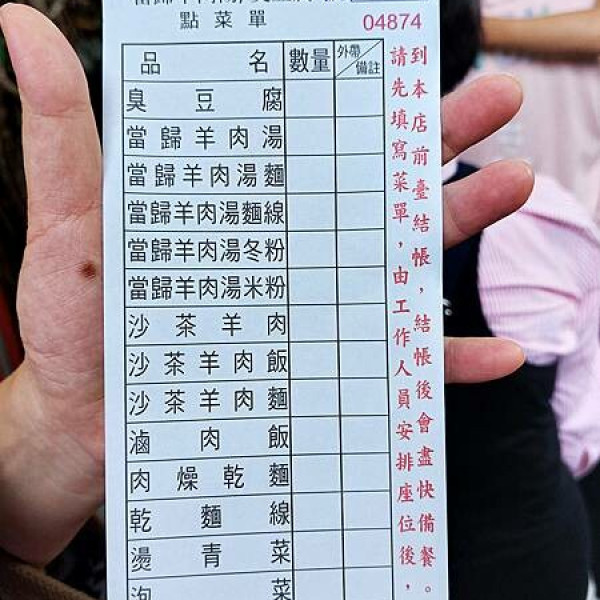 點菜單
04874
品名 數量 外帶/備註
臭豆腐
當歸羊肉湯
當歸羊肉湯麵
當歸羊肉湯麵線
當歸羊肉湯冬粉
當歸羊肉湯米粉
沙茶羊肉
沙茶羊肉飯
沙茶羊肉麵
滷肉飯
肉燥乾麵
乾麵線
燙青菜
泡菜
請先填寫菜單，由工作人員安排座位後，
到本店前臺結帳，結帳後會盡快備餐。